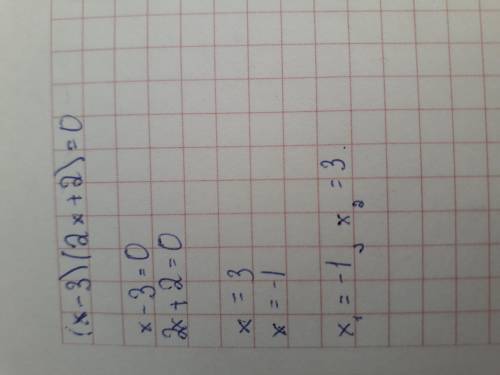 (x-3)(2x+2)=0
x-3=0
2x+2=0
x=3
x=-1
x₁=-1, x₂=3.